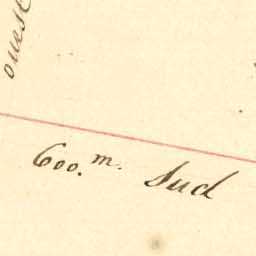 ouest
600.m. Sud